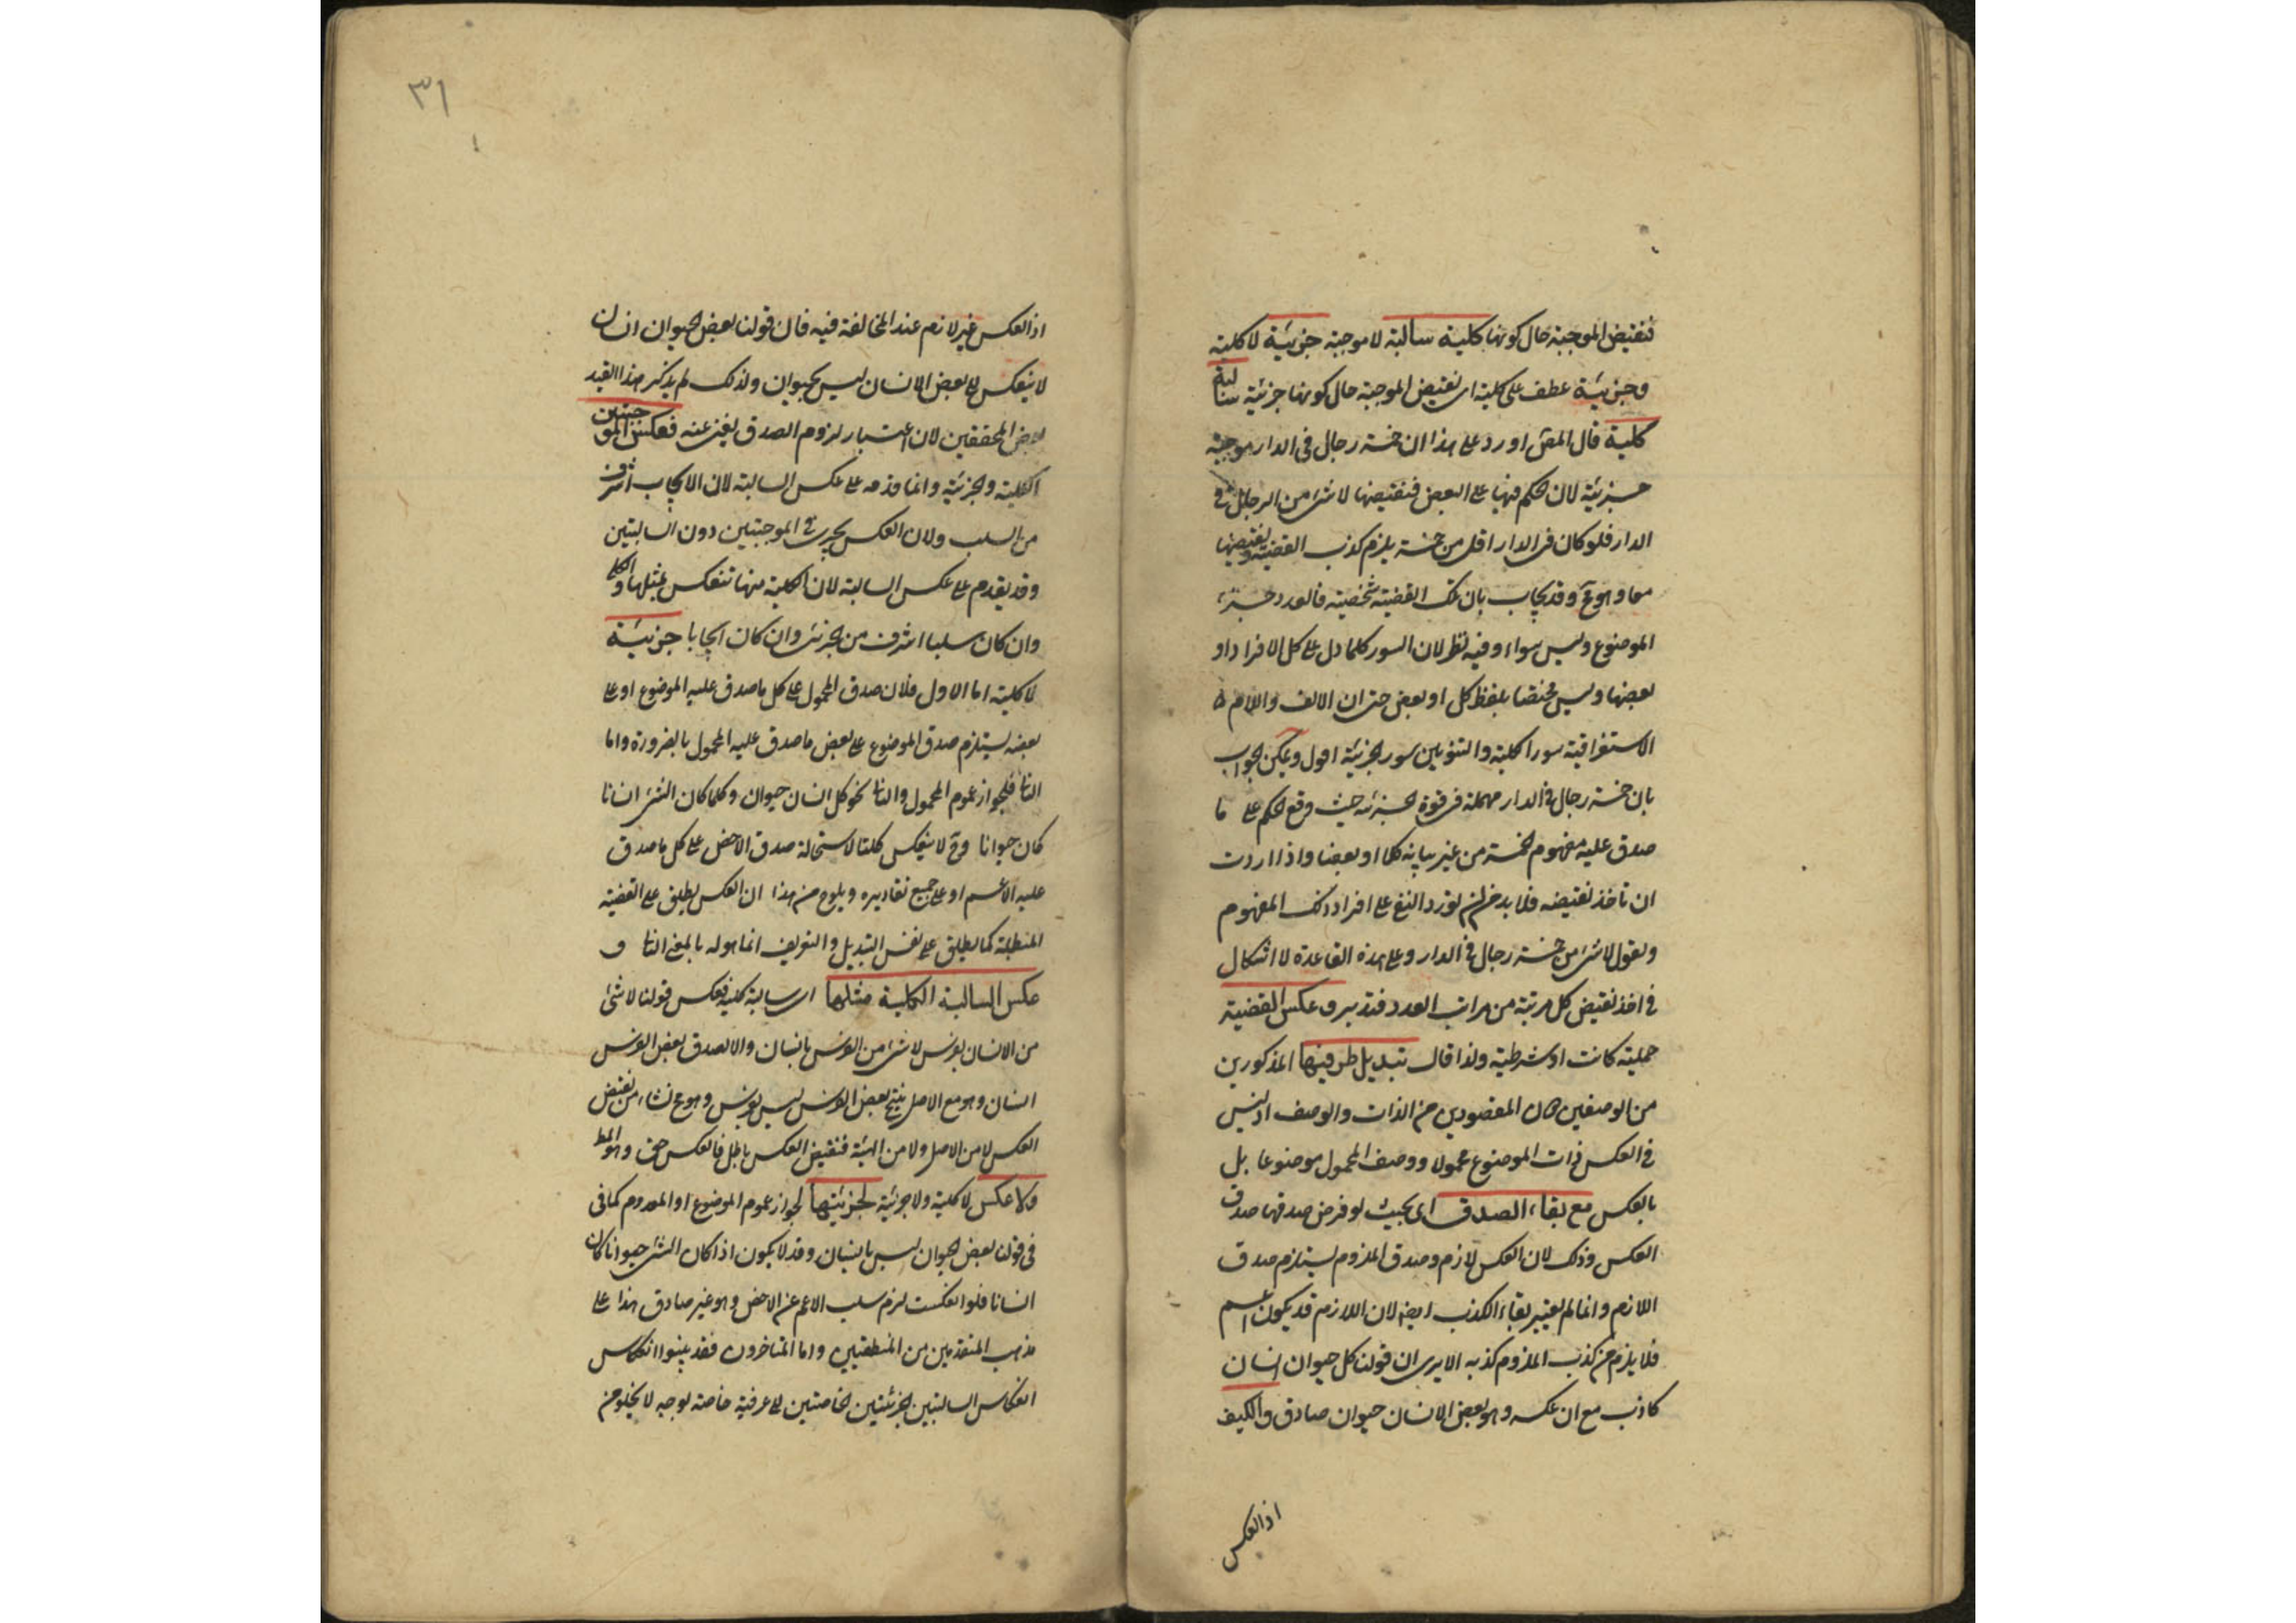 فنقيض الموجبة حال كونها كلية سالبة لا موجبة جزئية لا كلية
وجزئية عطف على كلية اى نقيض الموجبة حال كونها جزئية سالبة
كلية قال المحقق اورد على هذا ان خمسة رجال فى الدار موجبة
جزئية لان الحكم فيها على البعض فنقيضها لا شئ من الرجال فى
الدار فلو كان فى الدار اقل من خمسة يلزم كذب القضية ونقيضها
معا وهو مح وقد يجاب بان تلك القضية شخصية فالعدد جزء
الموضوع وليس سواء وفيه نظر لان السور كلما دل على كل الافراد او
بعضها وليس مختصا بلفظ كل او بعض حتى ان الالف واللام
الاستغراقية سورا لكلية والتنوين سور الجزئية اقول ويمكن الجواب
بان خمسة رجال فى الدار مهملة فى قوة الجزئية حيث وقع الحكم على ما
صدق عليه مفهوم الخمسة من غير بيانه كلا او بعضا واذا اردت
ان تاخذ نقيضه فلا بد من ان تورد النفى على افراد ذلك المفهوم
وتقول لا شئ من خمسة رجال فى الدار وعلى هذه القاعدة لا اشكال
فى اخذ نقيض كل مرتبة من مراتب العدد فتدبر و عكس القضية
حملية كانت او شرطية ولذا قال تبديل طرفيها المذكورين
من الوصفين المقصودين من الذات والوصف اذ ليس
فى العكس ذات الموضوع محمولا ووصف المحمول موضوعا بل
بالعكس مع بقاء الصدق اى بحيث لو فرض صدقها صدق
العكس وذلك لان العكس لازم وصدق الملزوم يستلزم صدق
اللازم وانما لم يعتبر بقاء الكذب ايضا لان اللازم قد يكون اعم
فلا يلزم من كذب الملزوم كذبه الا يرى ان قولنا كل حيوان انسان
كاذب مع ان عكسه وهو بعض الانسان حيوان صادق والكيف
اذ العكس
٣١
اذ العكس غير لازم عند المخالفة فيه فان قولنا بعض الحيوان انسان
لا ينعكس الى بعض الانسان ليس بحيوان ولذلك لم يذكر هذا القيد
بعض المحققين لان اعتبار لزوم الصدق يغنى عنه فعكس الموجبتين
الكلية والجزئية وانما قدمه على عكس السالبة لان الايجاب اشرف
من السلب ولان العكس يجرى فى الموجبتين دون السالبتين
وقد يقدم على عكس السالبة لان الكلية منها تنعكس بمثلها والكلى
وان كان سلبا اشرف من الجزئى وان كان ايجابا جزئية
لا كلية اما الاول فلان صدق المحمول على كل ما صدق عليه الموضوع او على
بعضه يستلزم صدق الموضوع على بعض ما صدق عليه المحمول بالضرورة واما
الثانى فلجواز عموم المحمول والتالى نحو كل انسان حيوان وكلما كان الشئ انسانا
كان حيوانا وح لا ينعكس كليا لاستحالة صدق الاخص على كل ما صدق
عليه الاعم او على جميع تقاديره ويلوح من هذا ان العكس يطلق على القضية
المنطبقة كما يطلق على نفس التبديل والتعريف انما هو له بالمعنى الثانى و
عكس السالبة الكلية مثلها اى سالبة كلية فعكس قولنا لا شئ
من الانسان بفرس لا شئ من الفرس بانسان والا لصدق بعض الفرس
انسان وهو مع الاصل ينتج بعض الفرس ليس بفرس وهو مح نشاء من نقيض
العكس لا من الاصل ولا من الهيئة فنقيض العكس باطل فالعكس حق وهو المط
ولا عكس لا كلية ولا جزئية لجزئيتها لجواز عموم الموضوع او المقدم كما فى
فى قولنا بعض الحيوان ليس بانسان وقد لا يكون اذا كان الشئ حيوانا كان
انسانا فلو انعكست لزم سلب الاعم عن الاخص وهو غير صادق هذا على
مذهب المتقدمين من المنطقيين واما المتاخرون فقد بينوا انعكاس
انعكاس السالبتين الجزئيتين الخاصتين الى عرفية خاصة بوجه لا يخلو من